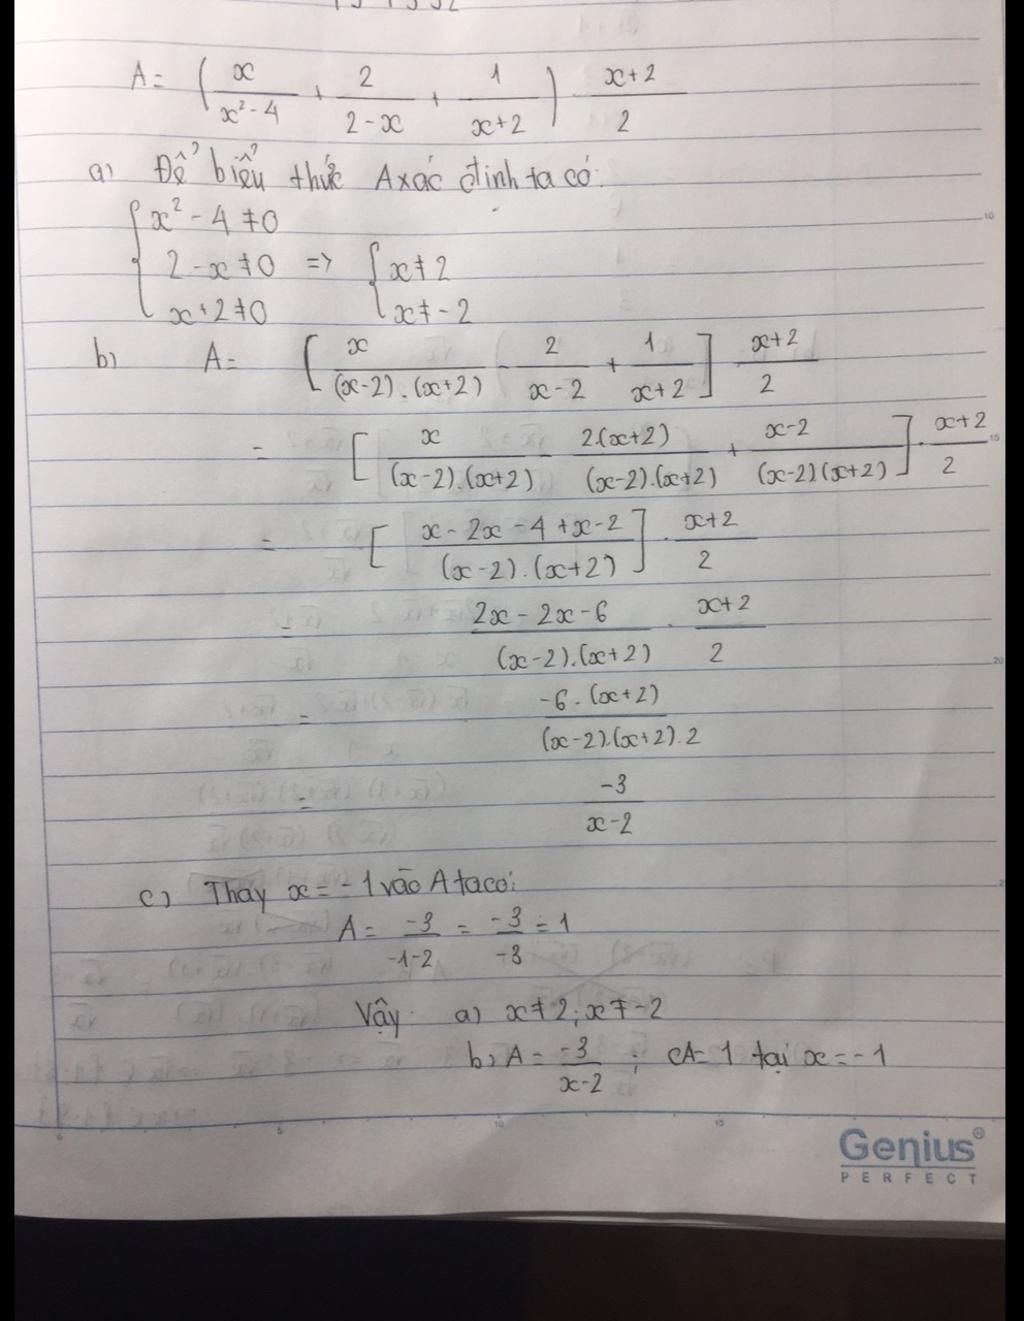 A = ( x/(x² - 4) + 2/(2 - x) + 1/(x + 2) ) . (x + 2)/2
a) Để biểu thức A xác định ta có:
{ x² - 4 ≠ 0
2 - x ≠ 0 => { x ≠ 2
x + 2 ≠ 0 x ≠ - 2
b) A = [ x/((x - 2).(x + 2)) - 2/(x - 2) + 1/(x + 2) ] (x + 2)/2
= [ x/((x - 2).(x + 2)) - 2.(x + 2)/((x - 2).(x + 2)) + (x - 2)/((x - 2)(x + 2)) ] . (x + 2)/2
= [ (x - 2x - 4 + x - 2)/((x - 2).(x + 2)) ] . (x + 2)/2
= (2x - 2x - 6)/((x - 2).(x + 2)) . (x + 2)/2
= -6.(x + 2)/((x - 2).(x + 2).2)
= -3/(x - 2)
c) Thay x = - 1 vào A ta có:
A = -3/(-1 - 2) = -3/-3 = 1
Vậy a) x ≠ 2; x ≠ - 2
b) A = -3/(x - 2) ; c) A = 1 tại x = - 1
Genius®
PERFECT